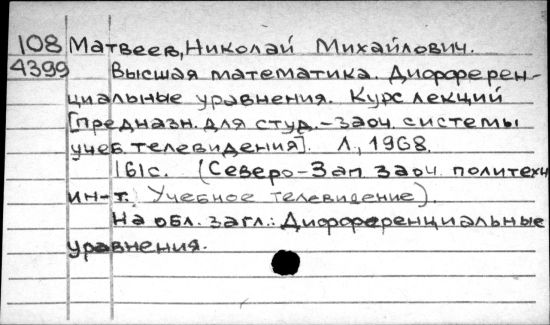 108 Матвеев, Николай Михайлович.
4399 Высшая математика. Дифферен-
циальные уравнения. Курс лекций
[предназн. для студ.-заоч. системы
учеб. телевидения]. Л., 1968.
161с. (Северо-Зап. заоч. политехн.
ин-т. Учебное телевидение).
На обл. загл.: Дифференциальные
уравнения.